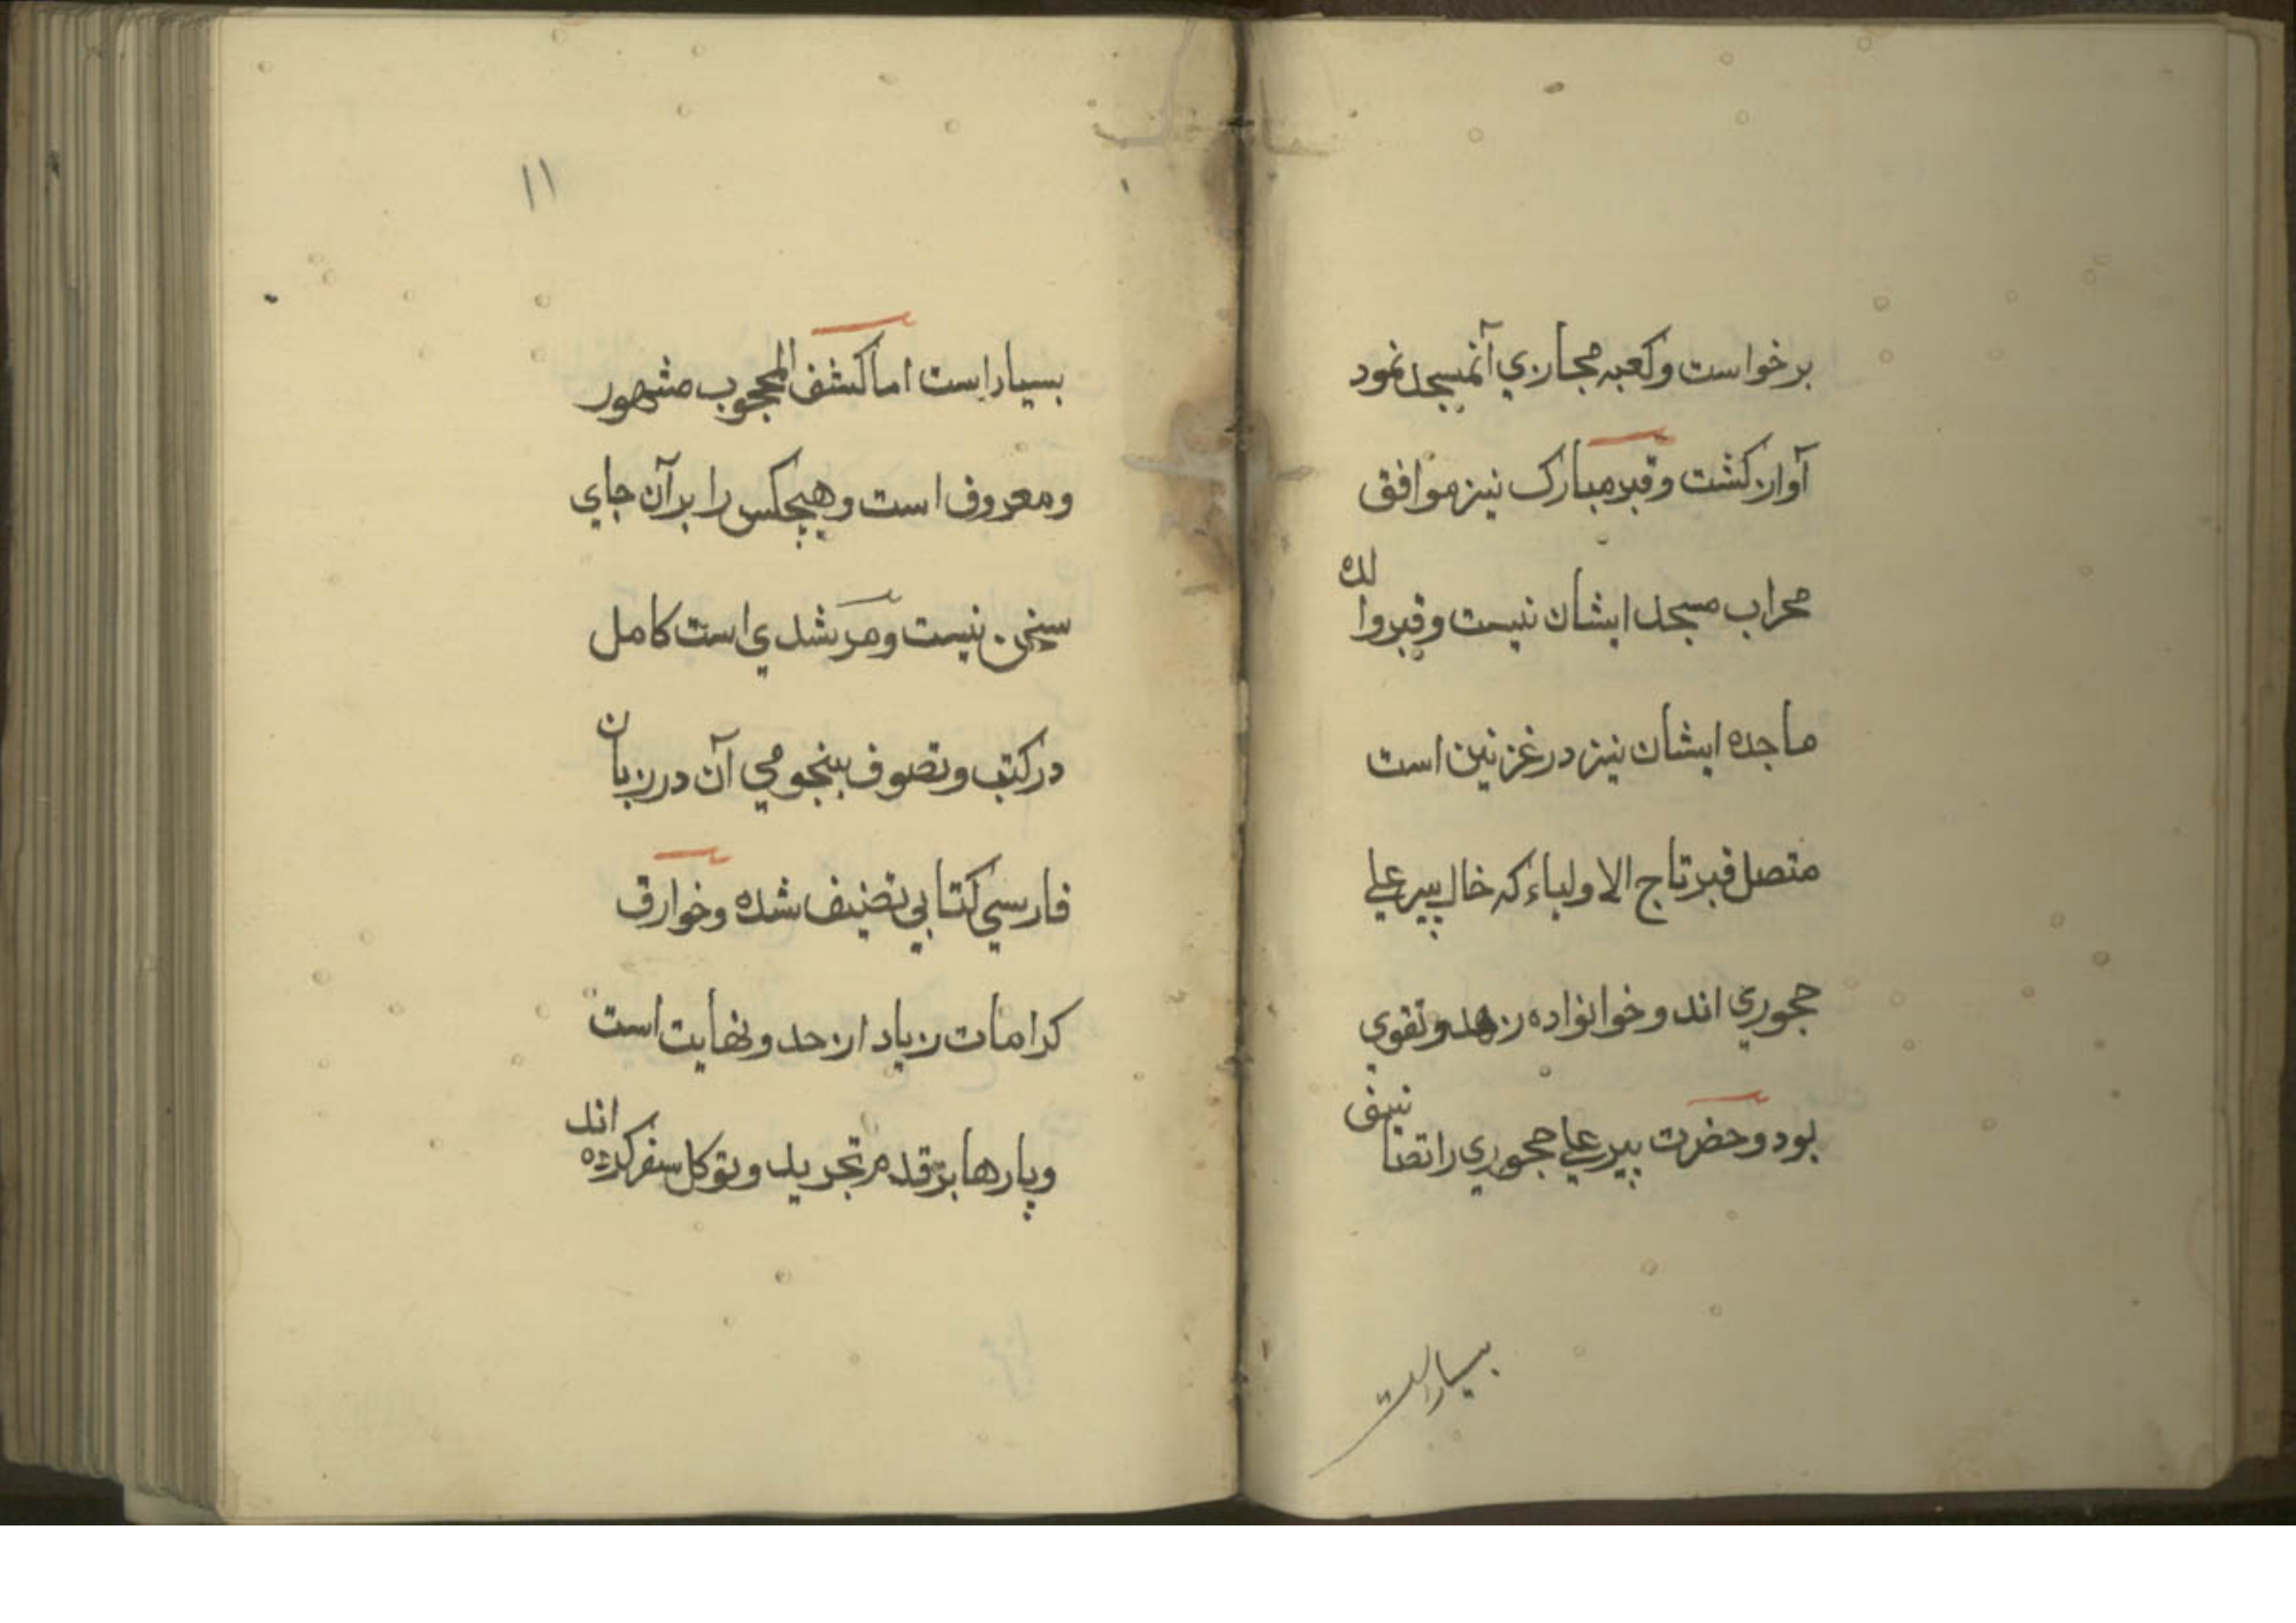 برخواست وكعبه مجازي آنمسجد نمود
آواز كشت وقبر مبارک نيز موافق
محراب مسجد ايشان نيست وقبر والده
ماجده ايشان نيز درغزنين است
متصل قبر تاج الاولياء كه خال پير علي
هجوري اند وخوانواده زهد وتقوي
بود وحضرت پير علي هجوري را تصانيفى
بسيار است
١١
بسيار است اما كشف المحجوب مشهور
ومعروف است وهيچكس را برآن جاي
سخن نيست ومرشدي است كامل
دركتب وتصوف بنجومي آن درزبان
فارسي كتابي تصنيف نشده وخوارق
كرامات زياد از حد ونهايت است
وبارها بر قدم تجريد وتوكل سفر كرده اند